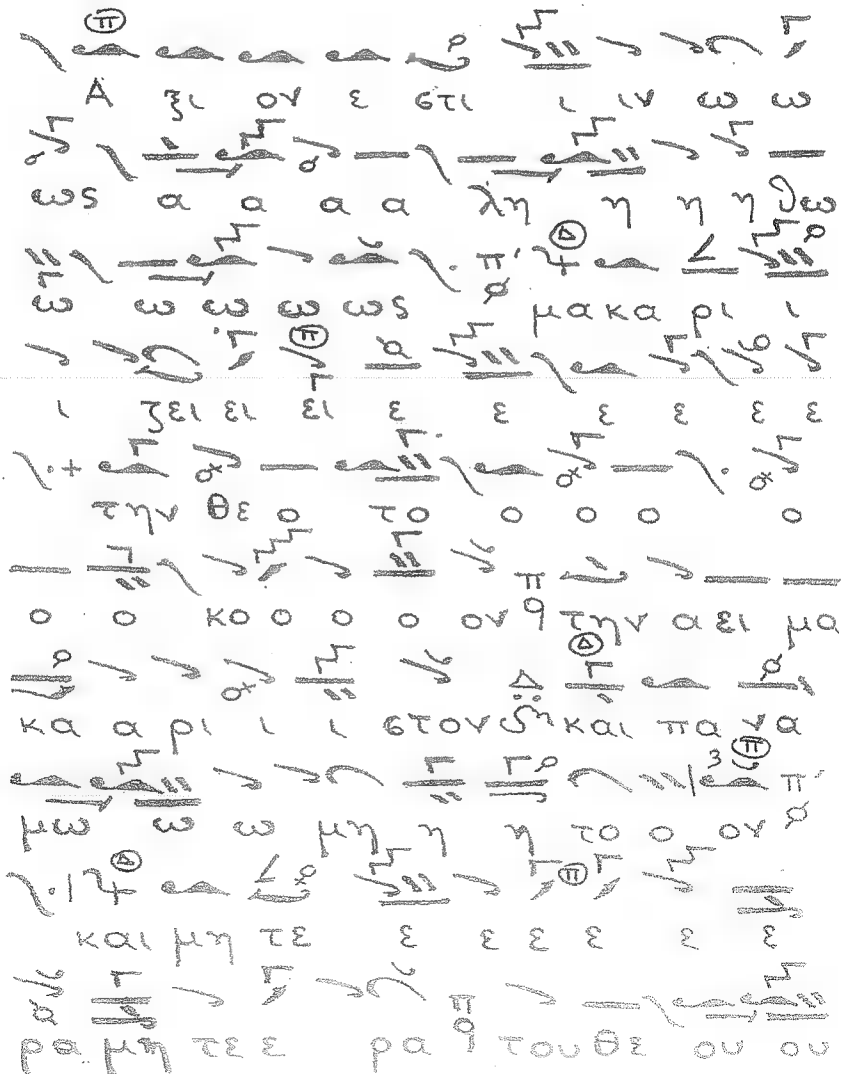 Α ξι ον ε στι ι ιν ω ω
ως α α α α λη η η η θω
ω ω ω ω ως μα κα ρι ι
ι ζει ει ει ε ε ε ε ε ε
την Θε ο το ο ο ο ο
ο ο κο ο ο ο ον την α ει μα
κα α ρι ι ι στον και πα να α
μω ω ω μη η η το ο ον
και μη τε ε ε ε ε ε ε
ρα μη τε ε ρα του Θε ου ου